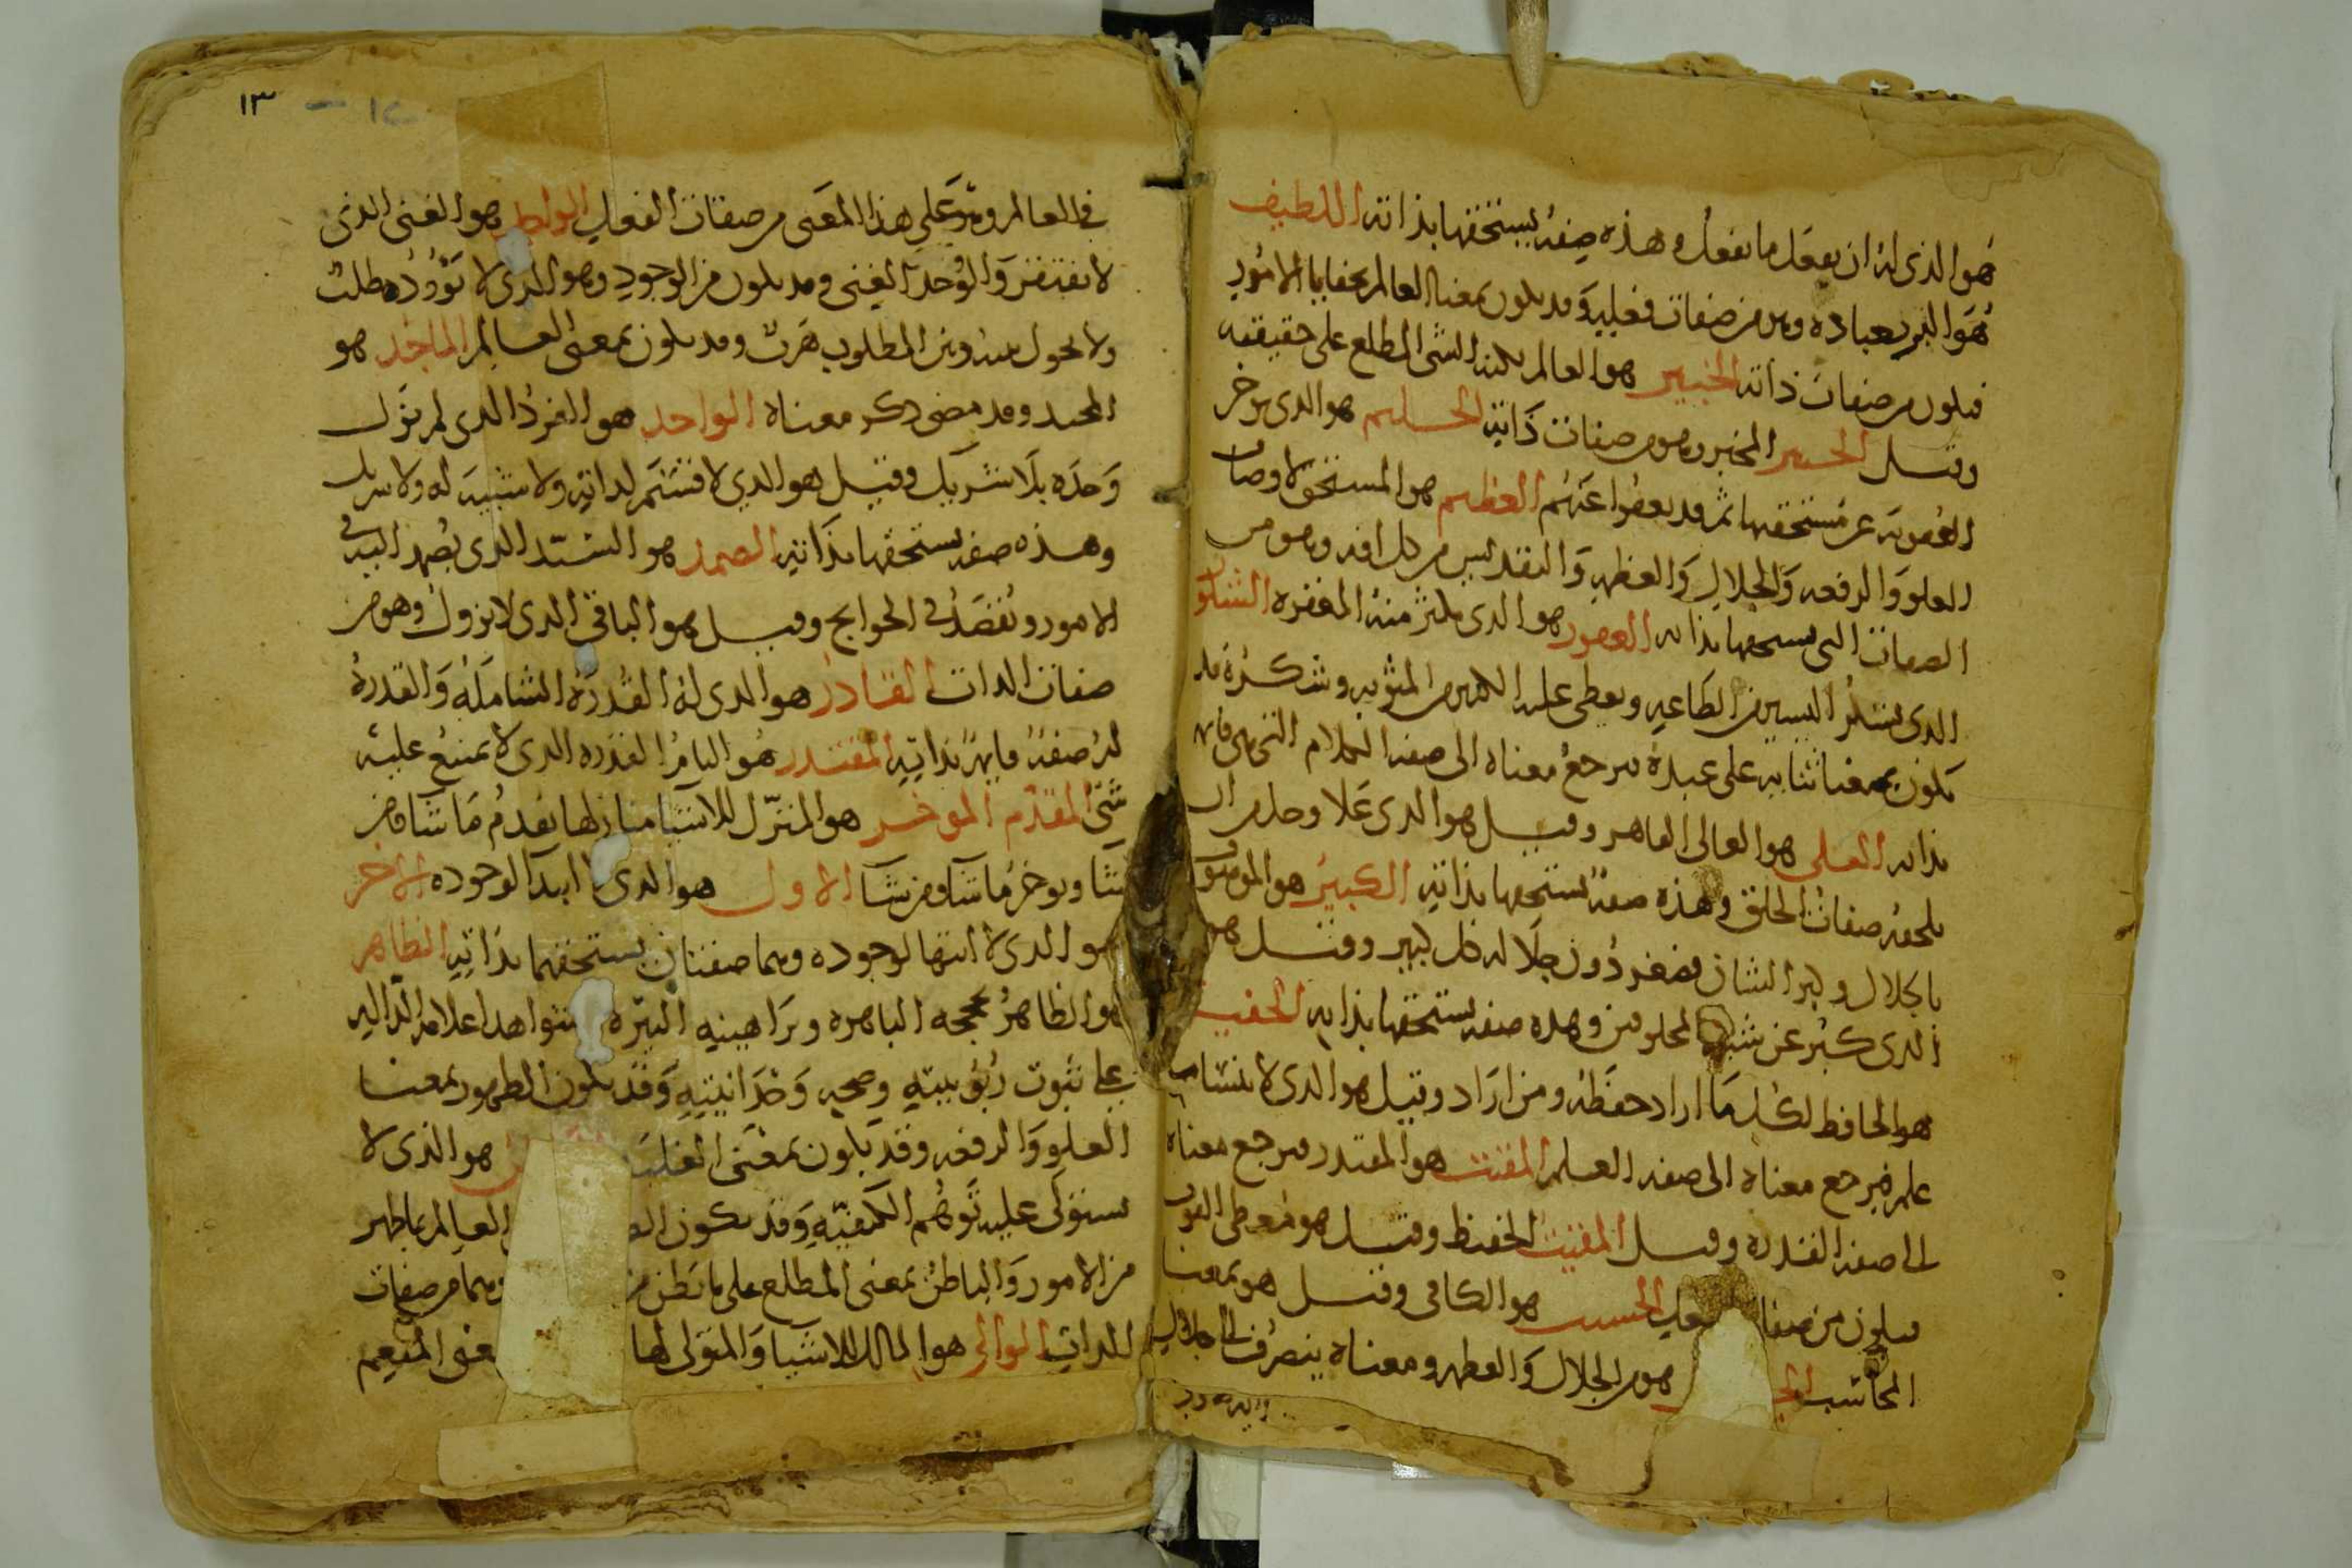 هو الذي له ان يفعل ما يفعل وهذه صفة يستحقها بذاته اللطيف
هو البر بعباده وهو من صفات فعليه وقد يكون بمعنا العالم بخفايا الامور
فيكون من صفات ذاته الخبير هو العالم بكنه الشي المطلع على حقيقته
وقيل الخبير المخبر وهو من صفات ذاته الحليم هو الذي يوخر
العقوبة عن مستحقيها ثم قد يعفوا عنهم العظيم هو المستحق لاوصاف
العلو والرفعه والجلال والعظمه والتقديس من كل افه وهو من
الصفات التي يستحقها بذاته الغفور هو الذي يكثر منه المغفره الشكور
الذي يشكر اليسير من الطاعه ويعطي عليه الكثير من المثوبه وشكره قد
يكون بمعنا ثنايه على عبده فيرجع معناه الى صفه الكلام التي هي قايمه
بذاته العلي هو العالي القاهر وقيل هو الذي علا وجل من ان
يلحقه صفات الخلق وهذه صفة يستحقها بذاته الكبير هو الموصوف
بالجلال وكبر الشان فصغر دون جلاله كل كبير وقيل هو
الذي كبر عن شبه المخلوقين وهذه صفه يستحقها بذاته الحفيظ
هو الحافظ لكل ما اراد حفظه ومن اراد وقيل هو الذي لا ينسا ما
علم فيرجع معناه الى صفه العلم المقيت هو المقتدر فيرجع معناه
الى صفه القدره وقيل المقيت الحفيظ وقيل هو معطي القوت
فيكون من صفات الفعل الحسيب هو الكافي وقيل هو بمعنا
المحاسب هو من الجلال والعظمه ومعناه ينصرف الى جلال
١٣ - ١٢
في العالم وهو على هذا المعنى من صفات الفعل الواجد هو الغني الذي
لا يفتقر والوجد الغنى وقد يكون من الوجود وهو الذي لا يؤوده طلب
ولا يحول بينه وبين المطلوب هرب وقد يكون بمعنى العالم الماجد هو
المجيد وقد مضى ذكر معناه الواحد هو الفرد الذي لم يزل
وحده بلا شريك وقيل هو الذي لا قسيم لذاته ولا شبيه له ولا شريك
وهذه صفه يستحقها بذاته الصمد هو السيد الذي يصمد اليه في
الامور ويقصد في الحوايج وقيل هو الباقي الذي لا يزول وهو من
صفات الذات القادر هو الذي له القدرة الشاملة والقدرة
له صفة قايمة بذاته المقتدر هو التام القدره الذي لا يمتنع عليه
شي المقدم الموخر هو المنزل للاشيا منازلها يقدم ما شا ومن
شا ويوخر ما شا ومن شا الاول هو الذي لا ابتدا لوجوده الاخر
هو الذي لا انتها لوجوده وهما صفتان يستحقهما بذاته الظاهر
هو الظاهر بحججه الباهره وبراهينه النيره وشواهد اعلامه الداله
على ثبوت ربوبيته وصحه وحدانيته وقد يكون الظهور بمعنا
العلو والرفعه وقد يكون بمعنى الغلبه هو الذي لا
يستولى عليه توهم الكيفيه وقد يكون العالم بما ظهر
من الامور والباطن بمعنى المطلع على ما بطن من وهما من صفات
الذات الوالي هو المالك للاشيا والمتولي لها بمعنى المنعم